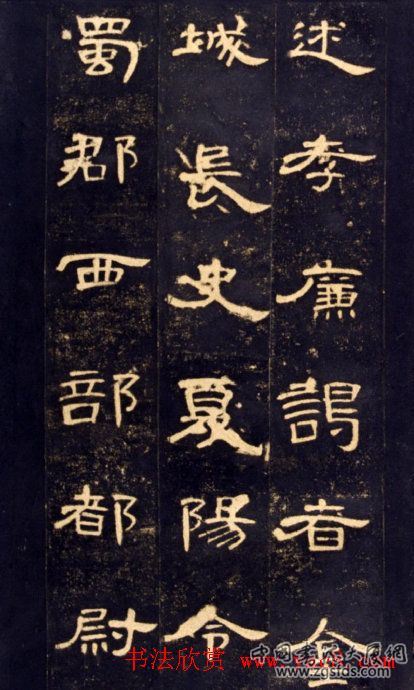 述孝廉謁者金
城長史夏陽令
蜀郡西部都尉
书法欣赏 www.yac8.com
www.zgsfds.com